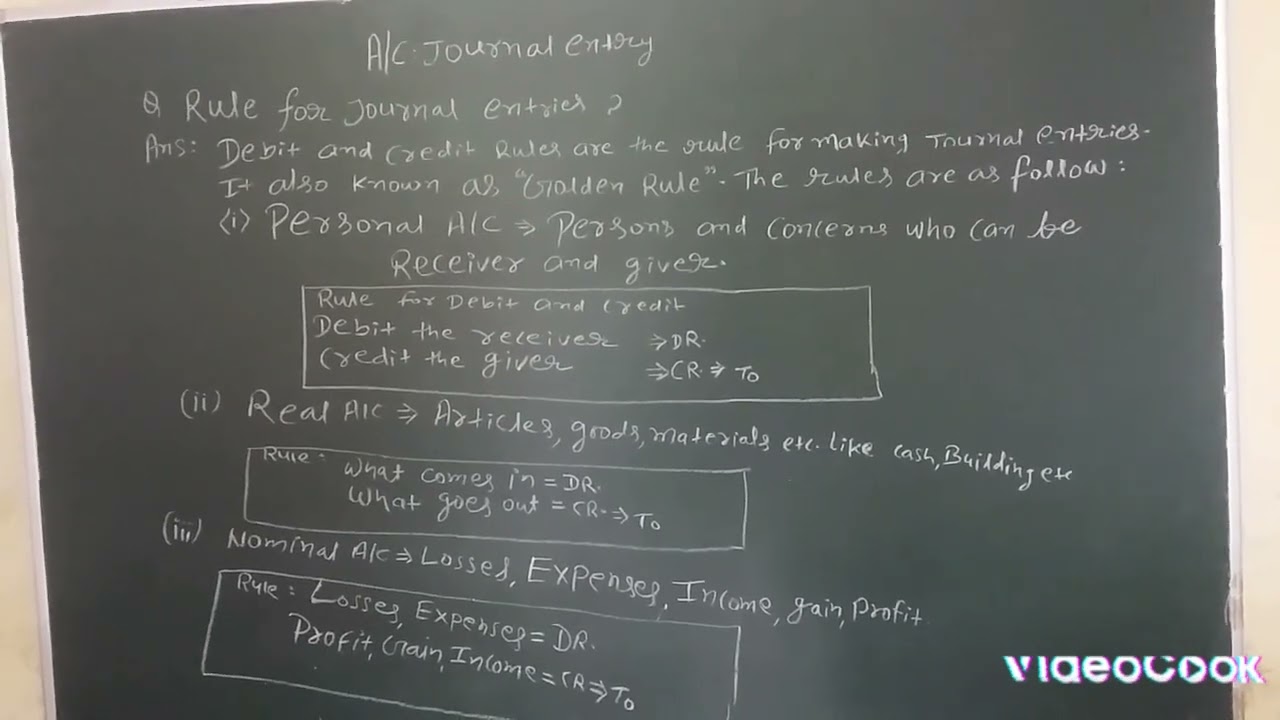 A/C. Journal entry
Q Rule for Journal entries ?
Ans: Debit and Credit Rules are the rule for making Journal entries.
It also known as "Golden Rule". The rules are as follow:
(i) Personal A/C ⇒ Persons and Concerns who can be
Receiver and giver.
Rule for Debit and Credit
Debit the receiver ⇒ DR.
Credit the giver ⇒ CR. ⇒ To
(ii) Real A/C ⇒ Articles, goods, materials etc. like cash, Building etc
Rule: What comes in = DR.
What goes out = CR. ⇒ To
(iii) Nominal A/C ⇒ Losses, Expenses, Income, gain, Profit
Rule: Losses, Expenses = DR.
Profit, Gain, Income = CR ⇒ To
VIDEOCOOK